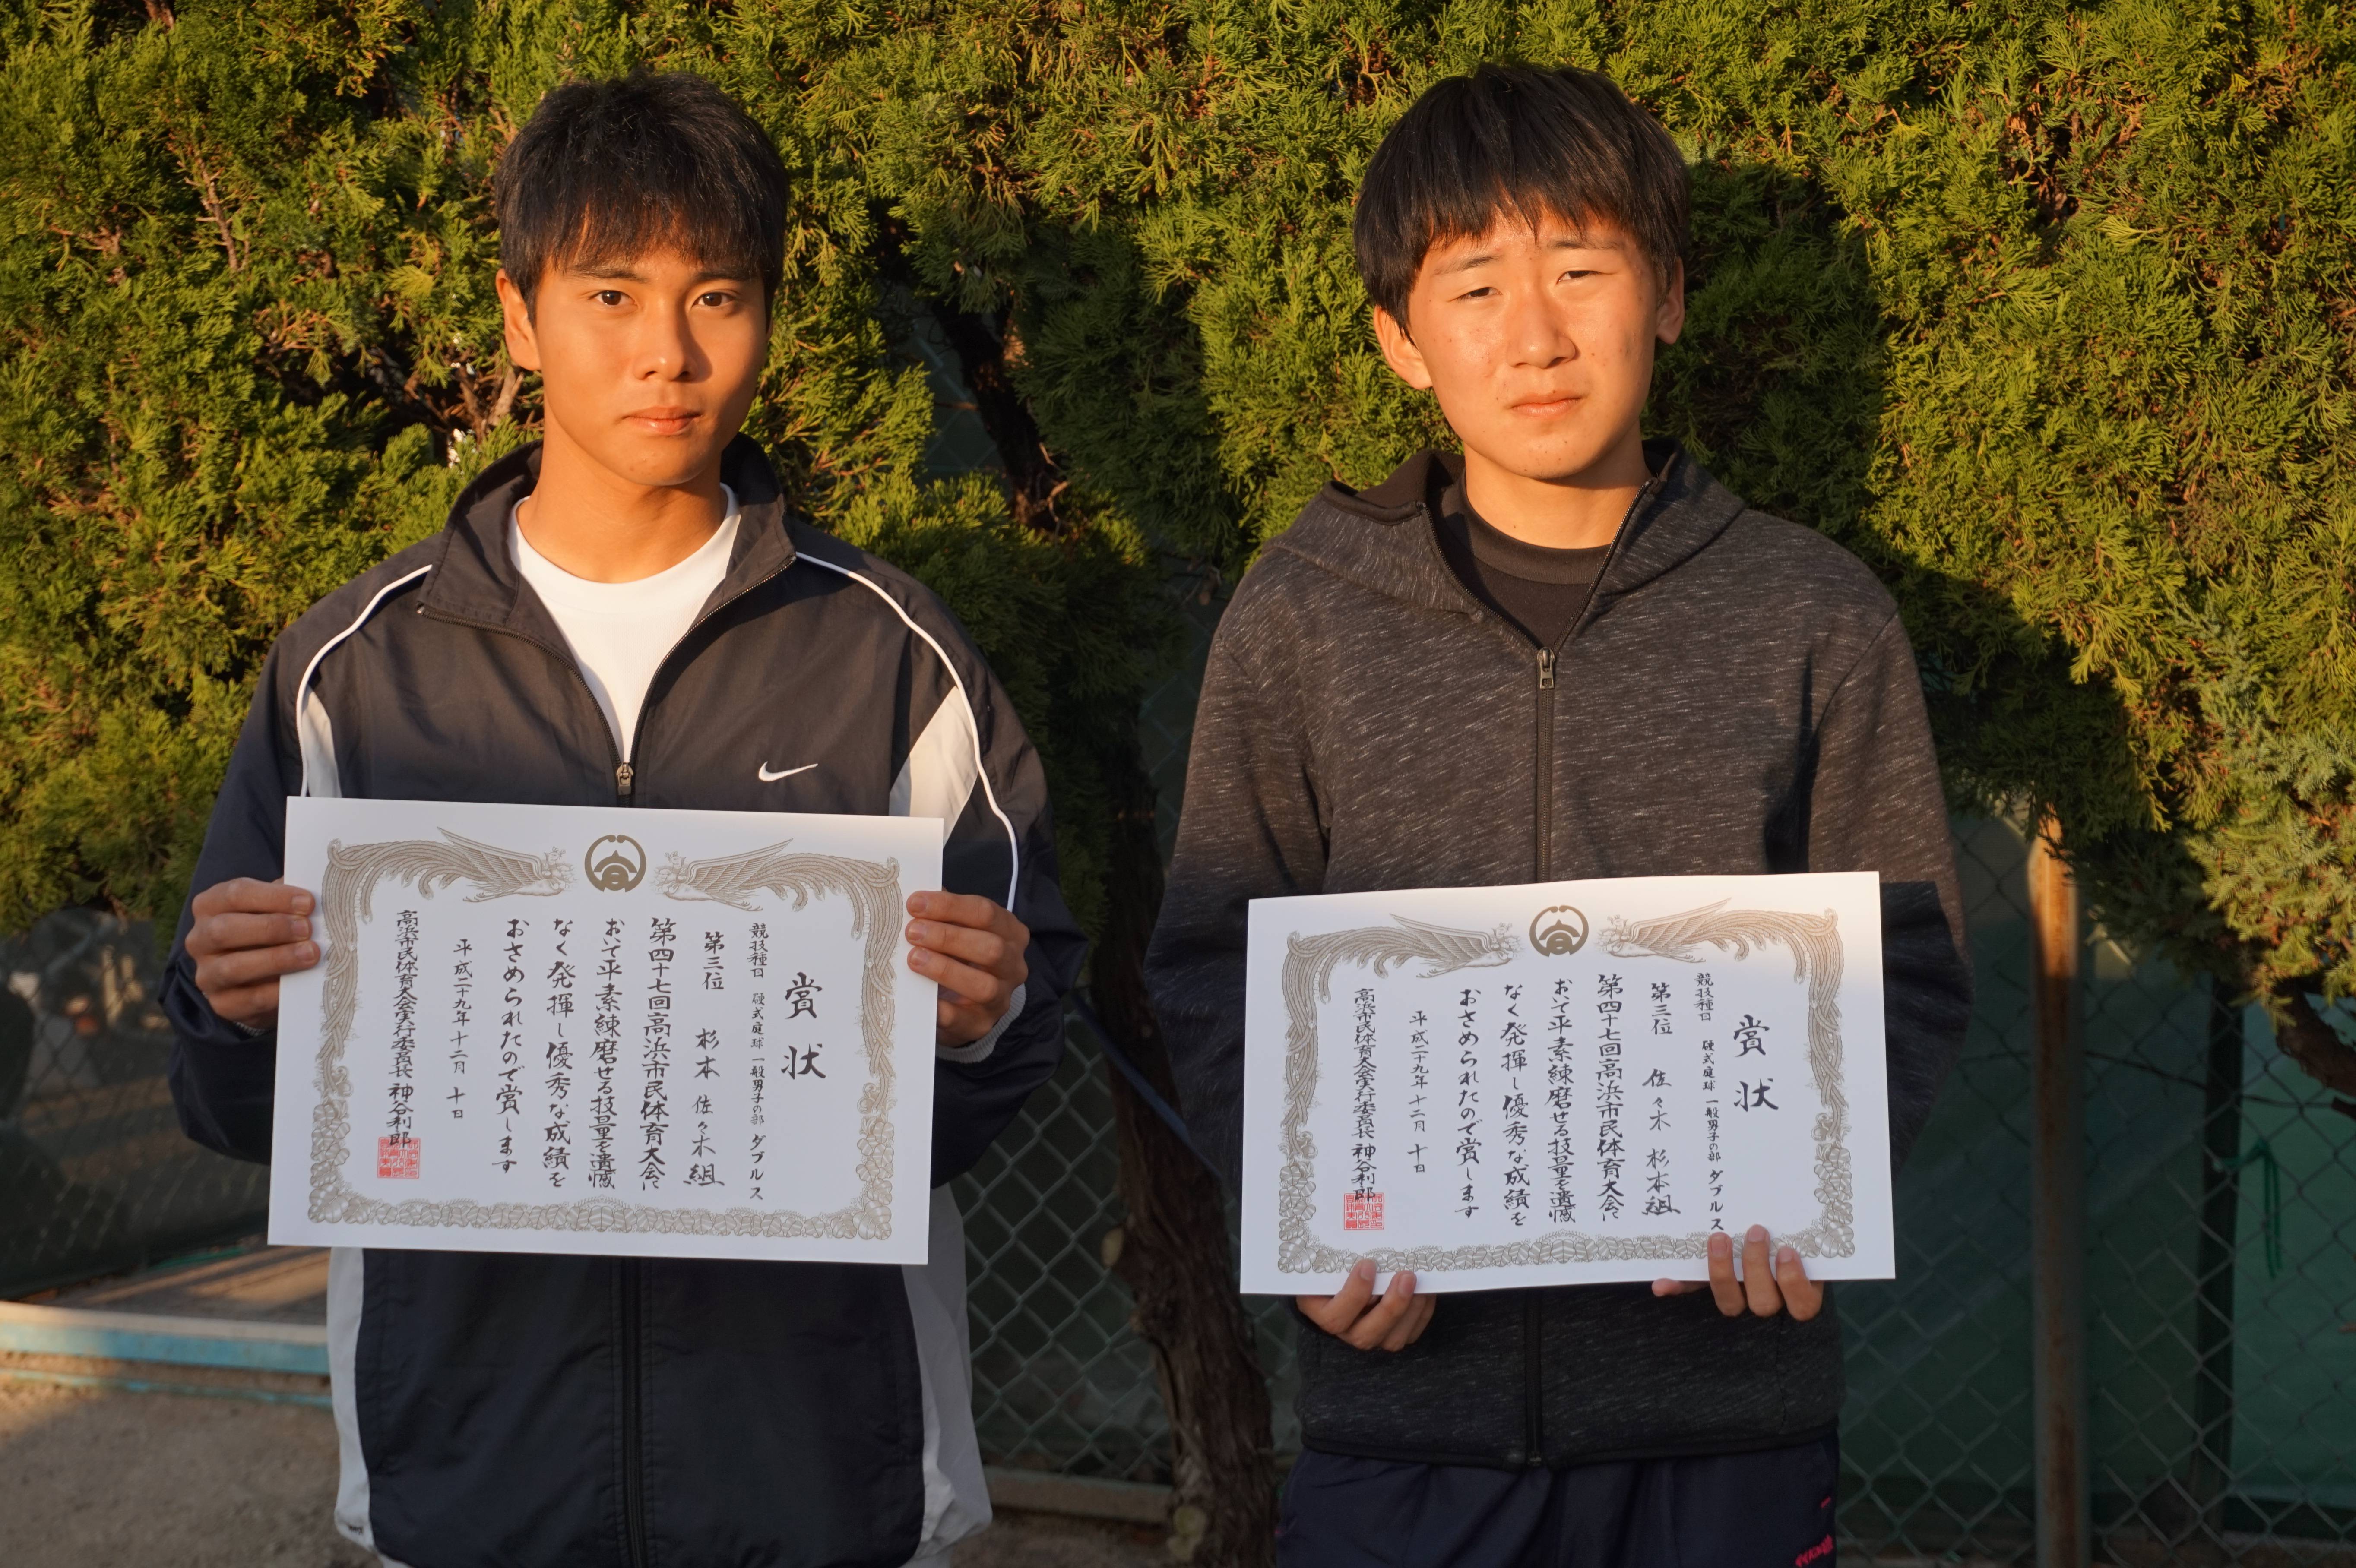 賞状
競技種目 硬式庭球 一般男子の部 ダブルス
第三位 杉本 佐々木 組
第四十七回高浜市民体育大会に
おいて平素練磨せる技量を遺憾
なく発揮し優秀な成績を
おさめられたので賞します
平成二十九年十二月 十日
高浜市民体育大会実行委員長 神谷利郎
賞状
競技種目 硬式庭球 一般男子の部 ダブルス
第三位 佐々木 杉本組
第四十七回高浜市民体育大会に
おいて平素練磨せる技量を遺憾
なく発揮し優秀な成績を
おさめられたので賞します
平成二十九年十二月 十日
高浜市民体育大会実行委員長 神谷利郎